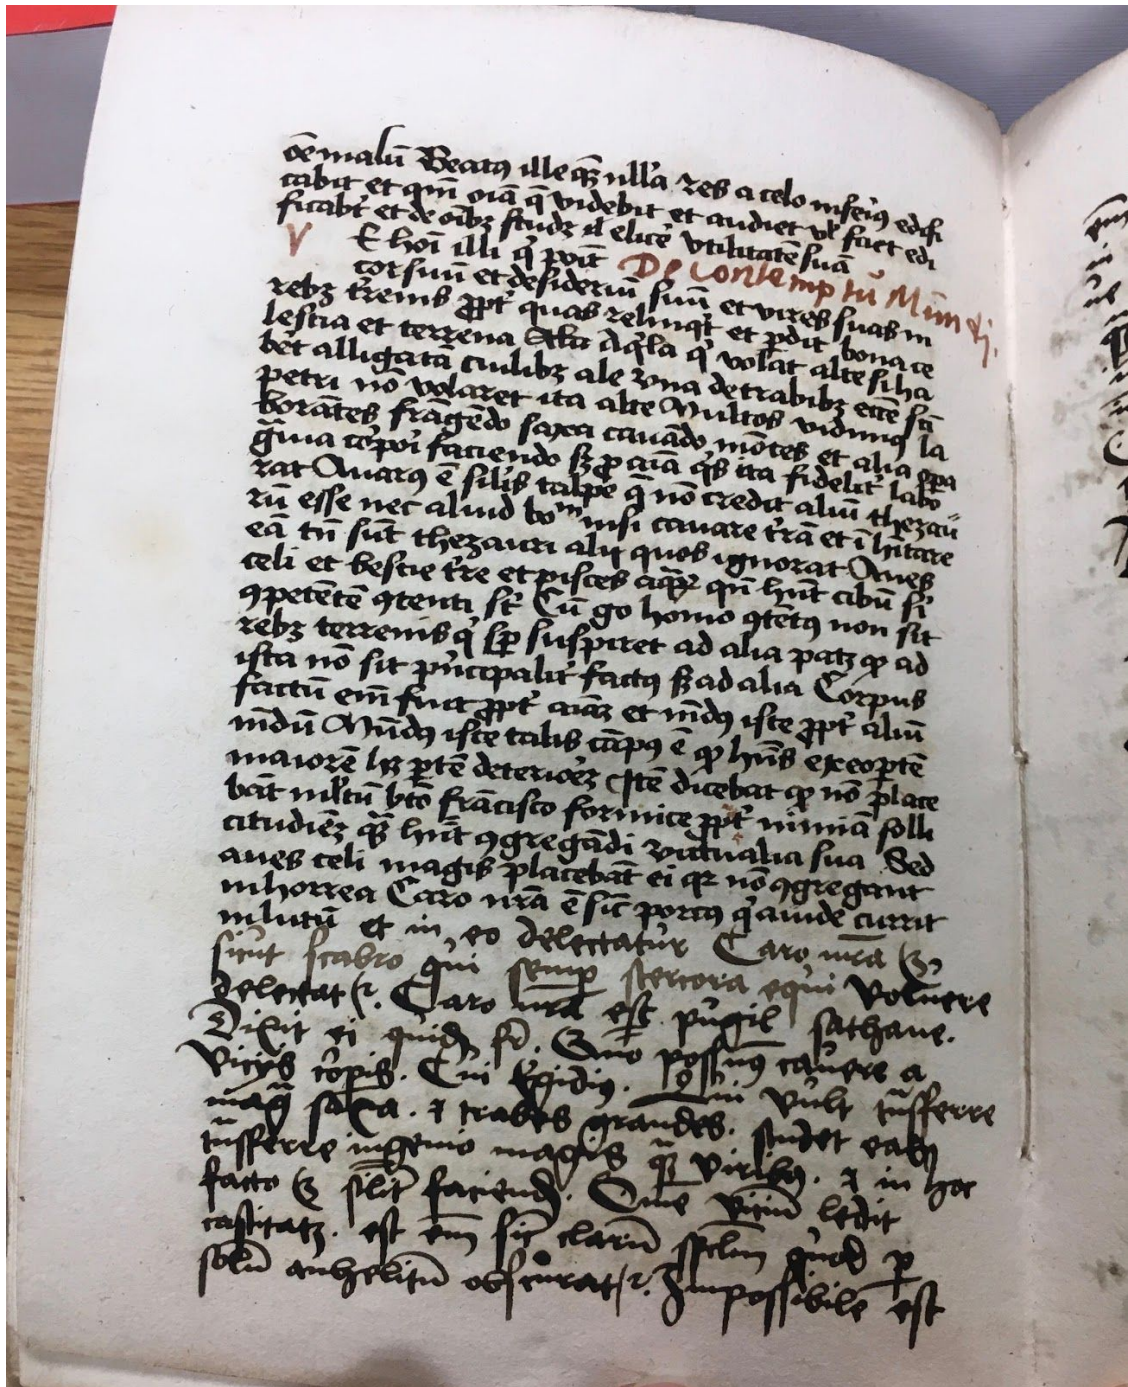 oēmalū Beatꝰ ille qꝫ nll'a res a celo inferiꝰ edifi
cabit et qm̄ oīa q̄ videbit et audiet vl' faciet edi
ficabt' et de oībꝫ studꝫ elice' vtilitatē suā
V E hoī illi q' poīt De contemptu Mundi.
cor suū et desideriū suū et vires suas in
rebꝫ t'renis ꝓpt' quas relinqt' et ꝑdit bona ce
lestia et terrena Aq'la q' volat alte si ha
bet alligatā cuilibꝫ ale vna de trabibꝫ eccē scī
petri nō volaret ita alte Multos vidimꝰ la
borātes frāgēdo saxa cauādo mōtes et alia opa
gͣuia corꝑi faciendo sꝫ ꝓ aīa q's ita fidelit' labo
rat Auarꝰ ē silis talpe q̄ nō credit aliū thezau
rū esse nec aliud boᵐ nisi cauare t'rā et ī hītare
eā tn̄ sūt thezauri alij quos ignorat Aues
celi et bestie t're et pisces aqꝝ qn̄ hn̄t cibū sī
ꝯpetētē ꝯtenti st̄ Cū go homo ꝯtētꝰ non sit
rebꝫ terrenis q' sꝑ suspiret ad alia patꝫ ꝙ ad
ista nō sit pn'cipalit' factꝰ sꝫ ad alia Corpus
factū em̄ fuit ꝓpt' aīaꝫ et mūdꝰ iste ꝓpt' aliū
mūdū Mūdꝰ iste talis cāpꝰ ē ꝙ hn̄s ex eo ꝑtē
maiorē hꝫ ꝑtē deteriorēꝫ Itē dicebat ꝙ nō place
bāt ml'tū bt̄o frācisco formice ꝓpt' nimiā solli
citudinēꝫ quā hn̄t ꝯgregādi victualia sua Sed
aues celi magis placebāt ei qꝛ nō ꝯgregant
in horrea Caro nr̄a ē sic̄ porcꝰ q' auide currit
in lutū et in eo delectatur Caro nr̄a ē
sicut scabro qui semꝑ stercora equi voluere
delectatꝛ. Caro nr̄a est pugil sathane.
Dixit ei quidꝫ fr̄. Quō possumꝰ cauere a
vicijs corꝑis. Cui Egidiꝰ. Qui vult tͣnsferre
magͣ saxa. ⁊ trabes grandes. studet eabꝰ
tͣnsferre ingenio magis qͣ viribꝰ. ⁊ in hoc
facto ē silit' faciendꝫ. Ome viciū ledit
castitatꝫ. est em̄ sic̄ clarū spclm̄ quod ꝑ
solū anhelitū obscuratꝛ. Impossibile est